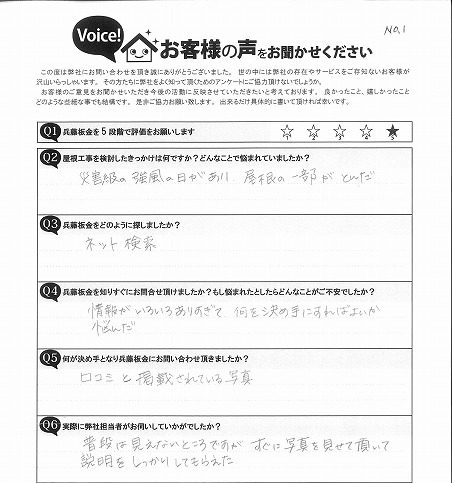 No.1
Voice!
お客様の声をお聞かせください
この度は弊社にお問い合わせを頂き誠にありがとうございました。世の中には弊社の存在やサービスをご存知ないお客様が
沢山いらっしゃいます。その方たちに弊社をよく知って頂くためのアンケートにご協力頂けないでしょうか。
お客様のご意見をお聞かせいただき今後の活動に反映させていただきたいと考えております。良かったこと、嬉しかったこと
どのような些細な事でも結構です。是非ご協力お願い致します。出来るだけ具体的に書いて頂ければ幸いです。
Q1 兵藤板金を5段階で評価をお願いします ☆1 ☆2 ☆3 ☆4 ★5
Q2 屋根工事を検討したきっかけは何ですか?どんなことで悩まれていましたか?
災害級の強風の日があり、屋根の一部がとんだ
Q3 兵藤板金をどのように探しましたか?
ネット検索
Q4 兵藤板金を知りすぐにお問合せ頂けましたか?もし悩まれたとしたらどんなことがご不安でしたか?
情報がいろいろありすぎて、何を決め手にすればよいか
悩んだ
Q5 何が決め手となり兵藤板金にお問い合わせ頂きましたか?
口コミと掲載されている写真
Q6 実際に弊社担当者がお伺いしていかがでしたか?
普段は見えないところですが すぐに写真を見せて頂いて
説明をしっかりしてもらえた